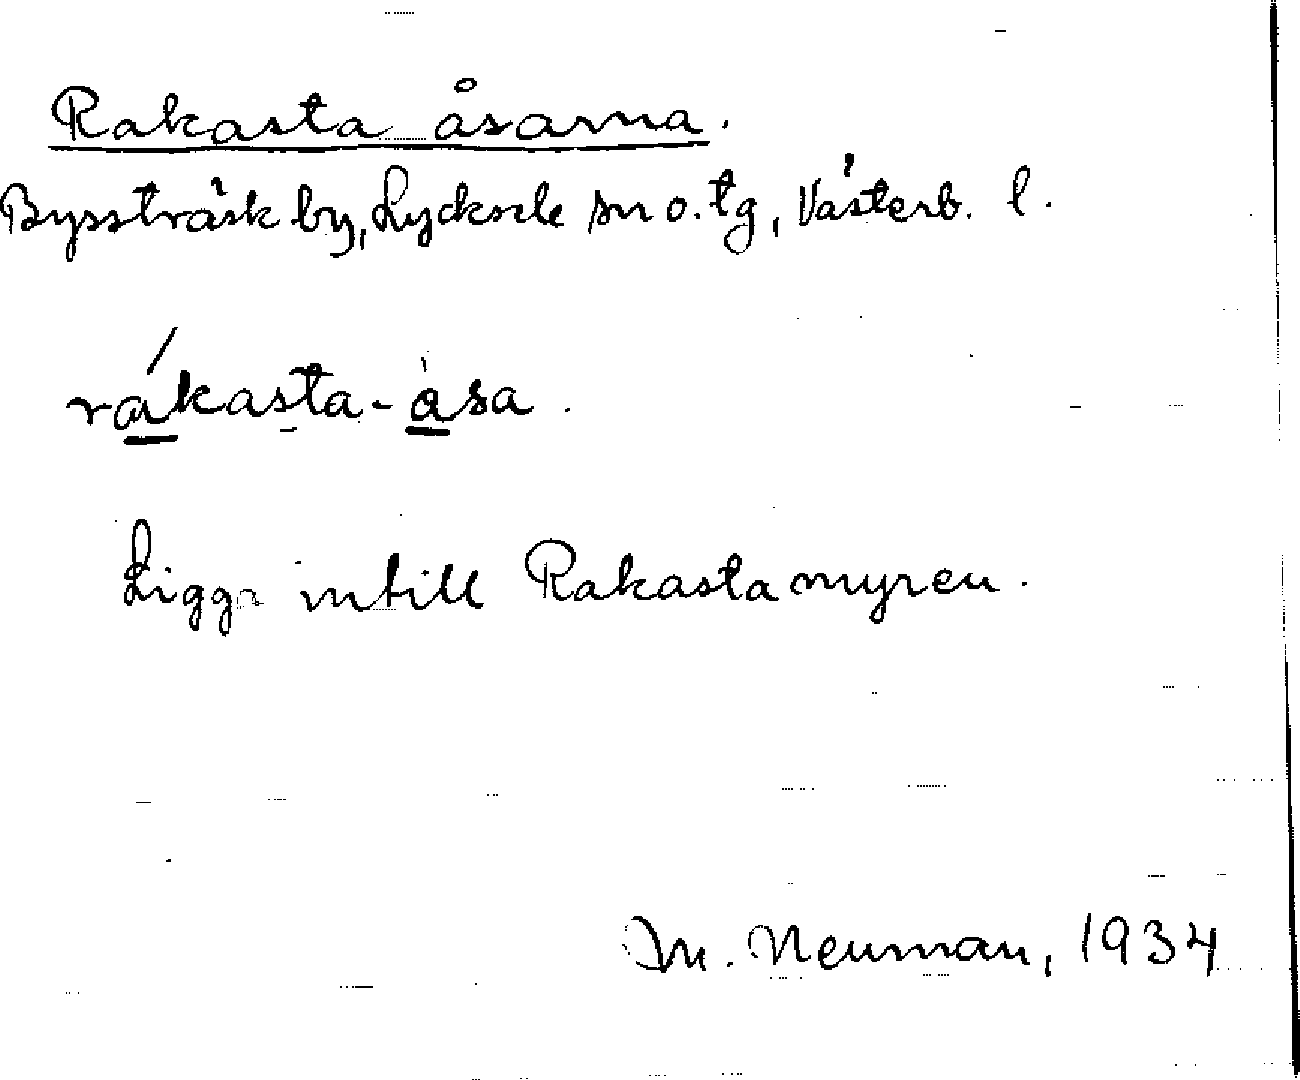 Rakasta åsarna.
Byssträsk by, Lycksele sn o. tg, Västerb. l.
rákasta-àsa.
Ligga intill Rakastamyren.
M. Neuman, 1934